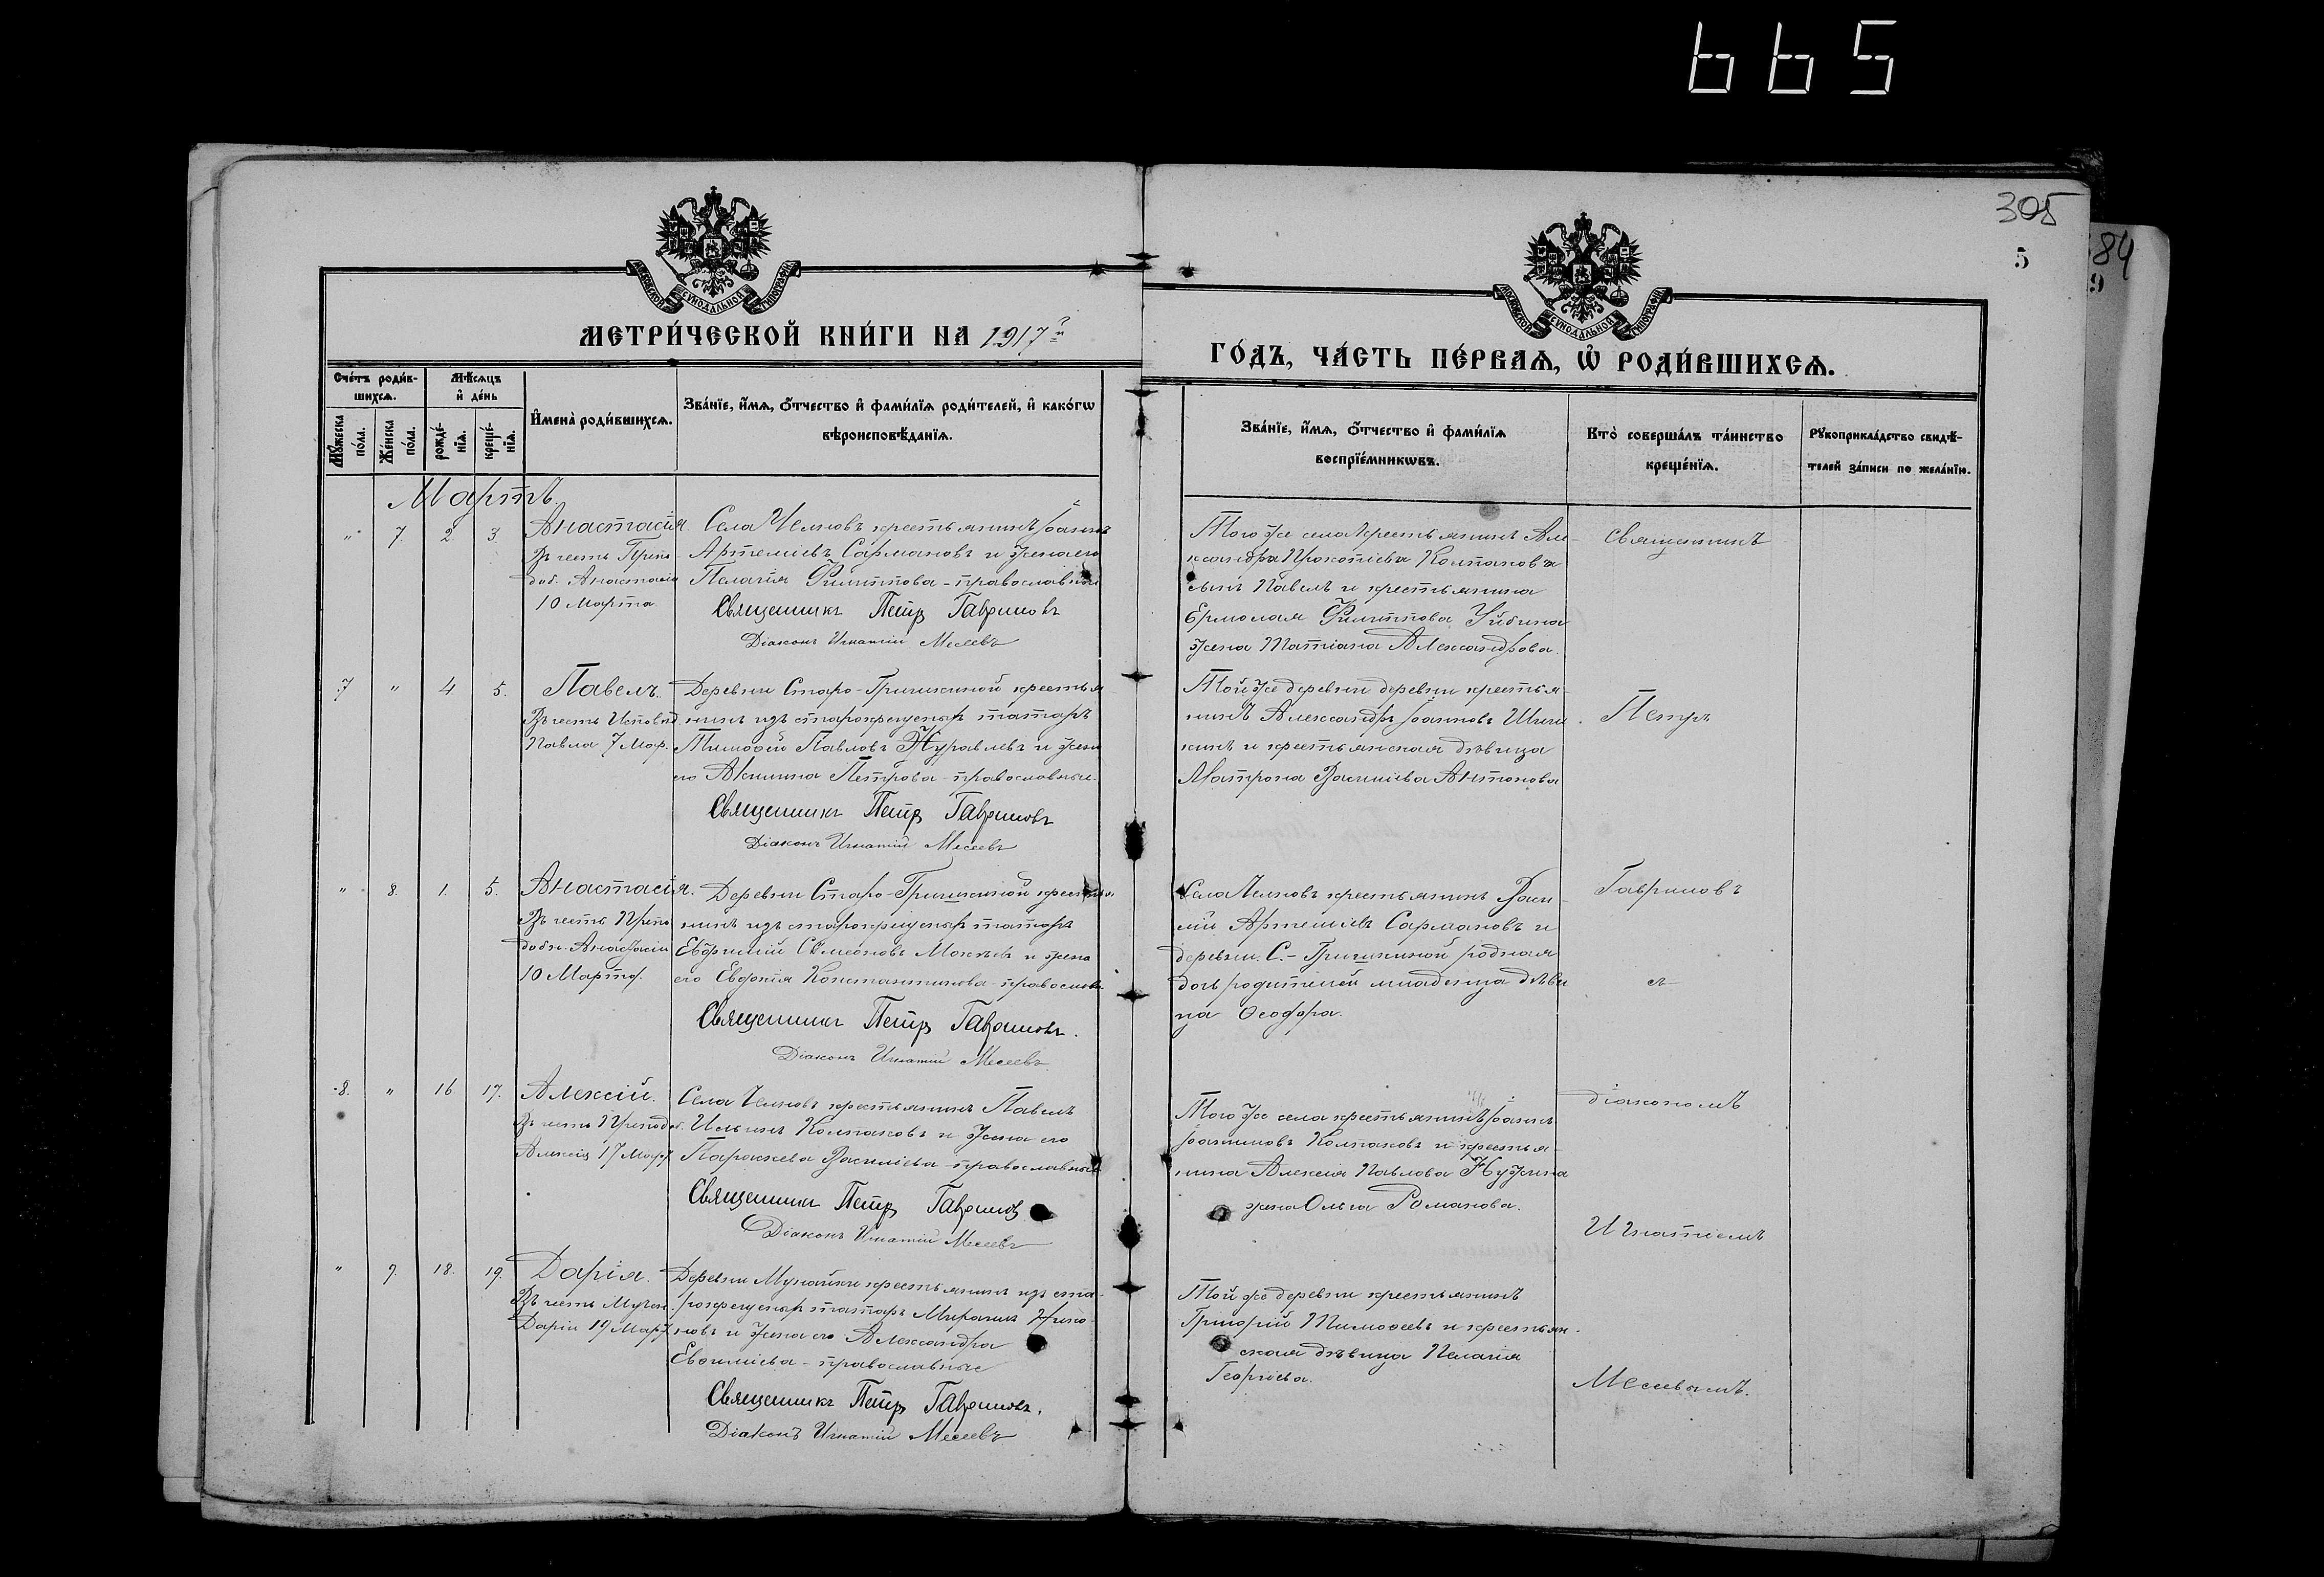 665
305
5
84
9
МОСКОВСКОЙ СѴНОДАЛЬНОЙ ТИПОГРАФІИ
МЕТРИ́ЧЕСКОЙ КНИ́ГИ НА 1917й
МОСКОВСКОЙ СѴНОДАЛЬНОЙ ТИПОГРАФІИ
ГО́ДЪ, ЧА́СТЬ ПЕ́РВАѦ, Ѡ҆ РОДИ́ВШИХСѦ.
Сче́тъ роди́в-
шихсѧ.
Мѣ́сѧцъ
и҆ де́нь
Мꙋ́жеска
по́ла.
Же́нска
по́ла.
рожде́-
нїѧ.
креще́-
нїѧ.
И҆мена̀ роди́вшихсѧ.
Зва́нїе, и҆́мѧ, ѻ҆́тчество и҆ фами́лїѧ роди́телей, и҆ како́гѡ
вѣроисповѣ́данїѧ.
Зва́нїе, и҆́мѧ, ѻ҆́тчество и҆ фами́лїѧ
воспрїе́мникѡвъ.
Кто̀ соверша́лъ та́инство
креще́нїѧ.
Рꙋкоприкла́дство свидѣ́-
телей за́писи по жела́нїю.
Мартъ.
" 7. 2. 3. Анастасія.
Въ честь Препо-
доб. Анастасіи
10 Марта
Села Челновъ крестьянинъ Іоаннъ
Артеміевъ Сармановъ и жена его
Пелагія Филиппова - православные
Священникъ Петръ Гавриловъ
Діаконъ Игнатій Месеевъ
Того же села крестьянина Але-
ксандра Прокопіева Колпакова
сынъ Павелъ и крестьянина
Ермолая Филиппова
жена Татіана Александрова.
Священникъ
7 " 4 5. Павелъ.
Въ честь Исповѣд.
Павла 7 Мар.
Деревни Старо-Гришкиной крестья-
нинъ изъ старокрещеныхъ татаръ
Тимоѳей Павловъ Журавлевъ и жена
его Акилина Петрова - православные.
Священникъ Петръ Гавриловъ
Діаконъ Игнатій Месеевъ
Той же деревни деревни крестья-
нинъ Александръ Іоанновъ
кинъ и крестьянская дѣвица
Матрона Василіева Антонова
Петръ
" 8. 1. 5. Анастасія.
Въ честь Препо-
добн. Анастасіи
10 Марта.
Деревни Старо-Гришкиной крестья-
нинъ изъ старокрещеныхъ татаръ
Евфимій Сѵмеоновъ Мокѣевъ и жена
его Евдокія Константинова - православн.
Священникъ Петръ Гавриловъ.
Діаконъ Игнатій Месеевъ
Села Челновъ крестьянинъ Васи-
лій Артеміевъ Сармановъ и
деревни С.-Гришкиной родная
дочь родителей младенца дѣви-
ца Ѳеодора.
Гавриловъ
съ
8. " 16 17. Алексій.
Въ честь Преподоб.
Алексія 17 Мар.
Села Челновъ крестьянинъ Павелъ
Ильинъ Колпаковъ и жена его
Параскева Василіева - православные
Священникъ Петръ Гавриловъ
Діаконъ Игнатій Месеевъ
Того же села крестьянинъ Іоаннъ
Іоанновъ Колпаковъ и крестья-
нина Алексія Павлова
жена Ольга Романова.
діакономъ
Игнатіемъ
" 9. 18. 19. Дарія.
Въ честь Мучен.
Даріи 19 Мар.
Деревни Мунайки крестьянинъ изъ ста-
рокрещеныхъ татаръ
и жена его Александра
Евѳиміева - православные
Священникъ Петръ Гавриловъ.
Діаконъ Игнатій Месеевъ
Той же деревни крестьянинъ
Григорій Тимоѳеевъ и крестьян-
ская дѣвица Пелагія
Георгіева.
Месеевымъ.